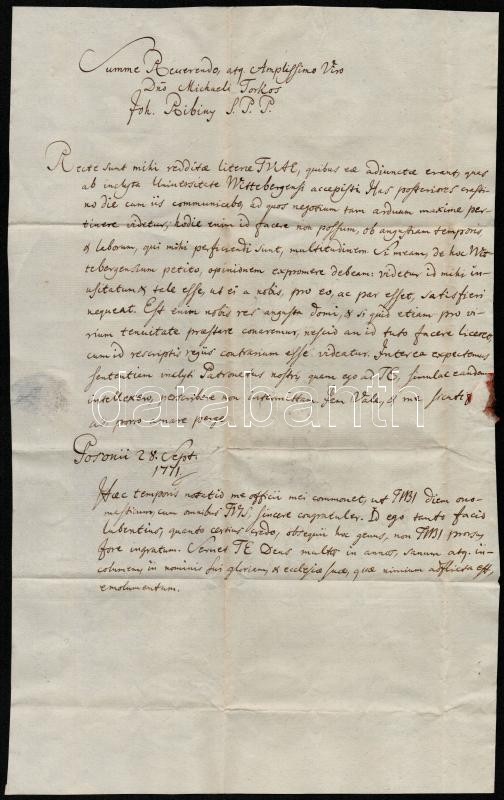 Summe Reverendo, atq Amplissimo Viro
Dno Michaeli Torkos
Joh. Ribiny S. P. P.
Recte sunt mihi redditæ literæ TUAE, quibus eæ adjunctæ erant, quas
ab inclyta Universitate Wittebergensi accepisti. Has posteriores crasti-
no die cum iis communicabo, ad quos negotium tam arduum maxime per-
tinere videtur; hodie enim id facere non possum, ob angustiam temporis
& laborum, qui mihi perficiendi sunt, multitudinem. Si meam, de hoc Wit-
tebergensium petito, opinionem expromere debeam: videtur id mihi in-
usitatum & tale esse, ut ei a nobis, pro eo, ac par esset, satisfieri
nequeat. Est enim nobis res angusta domi, & si quid etiam pro vi-
rium tenuitate præstare conaremur, nescio an id tuto facere liceret,
cum id rescriptis regiis contrarium esse videatur. Interea expectemus
sententiam inclyti Patronatus nostri, quam ego ad TE, simulac eandem
intellexero, perscribere non intermittam. Jam Vale, et me
ac porro amare perge.
darabanth
Posonii 28. Sept.
1771.
Hæc temporis notatio me officii mei commonet, ut TIBI diem ono-
masticum, cum omnibus TUIS, sincere congratuler. Id ego tanto facio
lubentius, quanto certius credo, obsequii hoc genus, non TIBI prorsus
fore ingratum. Servet TE Deus multos in annos, sanum atq. in-
columem, in nominis sui gloriam, & ecclesiæ suæ, quæ nimium adflicta est,
emolumentum.